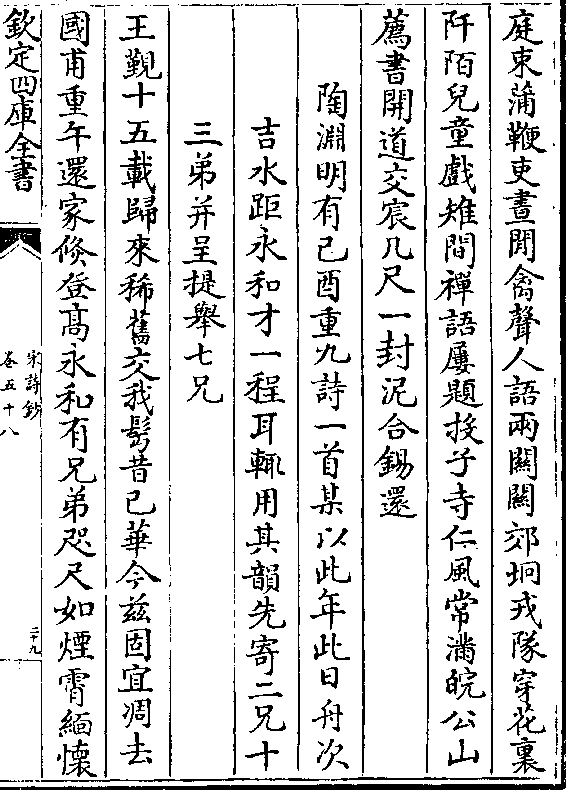 庭束蒲鞭吏晝閒禽聲人語兩關關郊坰戎隊穿花裏
阡陌兒童戲雉間禪語屢題投子寺仁風常滿皖公山
薦書開道交宸几尺一封泥合錫還
陶淵明有己酉重九詩一首某以此年此日舟次
吉水距永和才一程耳輒用其韻先寄二兄十
三弟并呈提舉七兄
王覲十五載歸來稀舊交我髩昔已華今兹固宜凋去
國甫重午還家倐登髙永和有兄弟咫尺如煙霄緬懷
欽定四庫全書
宋詩鈔
卷五十八
二十九